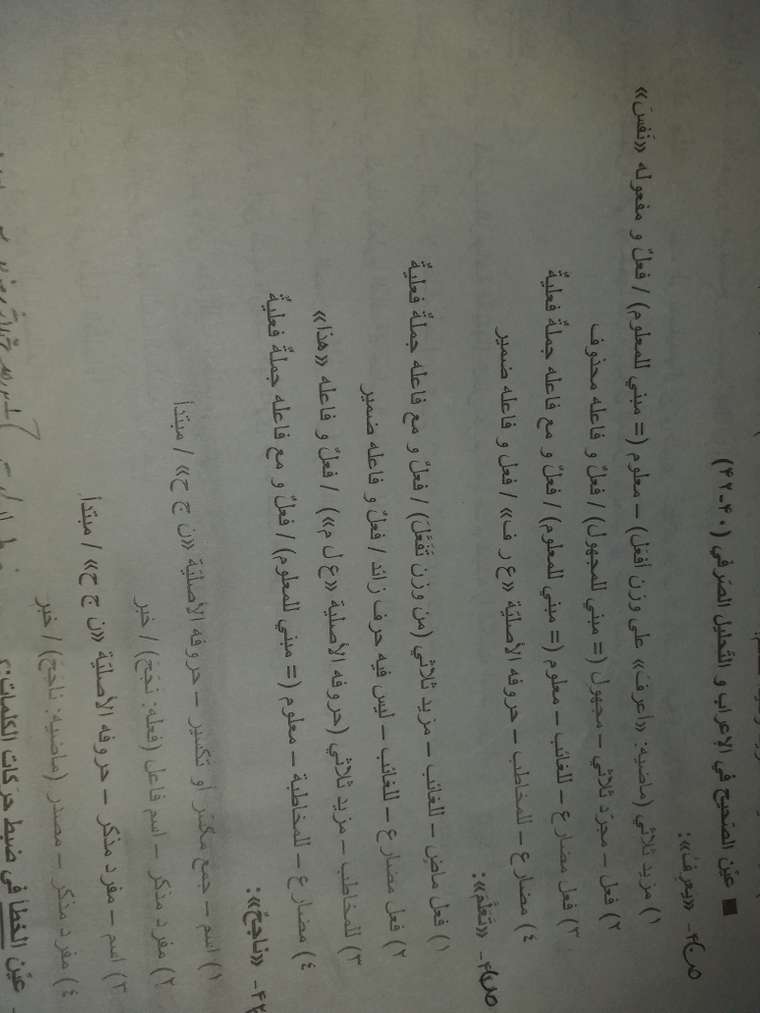 ■ عیّن الصّحیح في الإعراب و التّحلیل الصّرفي (۴۰-۴۲)
۴۰- «یعرفُ»:
۱) مزید ثلاثي (ماضیه: «أعرفَ» علی وزن أفعَلَ) – معلوم (= مبني للمعلوم) / فعلٌ و مفعوله «نَفسَ»
۲) فعل – مجرّد ثلاثي – مجهول (= مبني للمجهول) / فعلٌ و فاعله محذوف
۳) فعل مضارع – للغائب – معلوم (= مبني للمعلوم) / فعلٌ و مع فاعله جملةٌ فعلیةٌ
٤) مضارع – للمخاطب – حروفه الأصلیّة «ع ر ف» / فعل و فاعله ضمیر
«تَعَلَّمَ»:
۱) فعل ماضٍ – للغائب – مزید ثلاثي (من وزن تَفَعَّلَ) / فعلٌ و مع فاعله جملةٌ فعلیةٌ
۲) فعل مضارع – للغائب – لیس فیه حرف زائد / فعلٌ و فاعله ضمیر
۳) للمخاطب – مزید ثلاثي (حروفه الأصلیة «ع ل م») / فعلٌ و فاعله «هذا»
٤) مضارع – للمخاطبة – معلوم (= مبني للمعلوم) / فعلٌ و مع فاعله جملةٌ فعلیةٌ
۴۲- «ناجحٌ»:
۱) اسم – جمع مکسّر أو تکسیر – حروفه الأصلیّة «ن ج ح» / مبتدأ
۲) مفرد مذکر – اسم فاعل (فعله: نجَحَ) / خبر
۳) اسم – مفرد مذکر – حروفه الأصلیّة «ن ج ح» / مبتدأ
٤) مفرد مذکر – مصدر (ماضیه: ناجَحَ) / خبر
عیّن الخطأ في ضبط حرکات الکلمات: